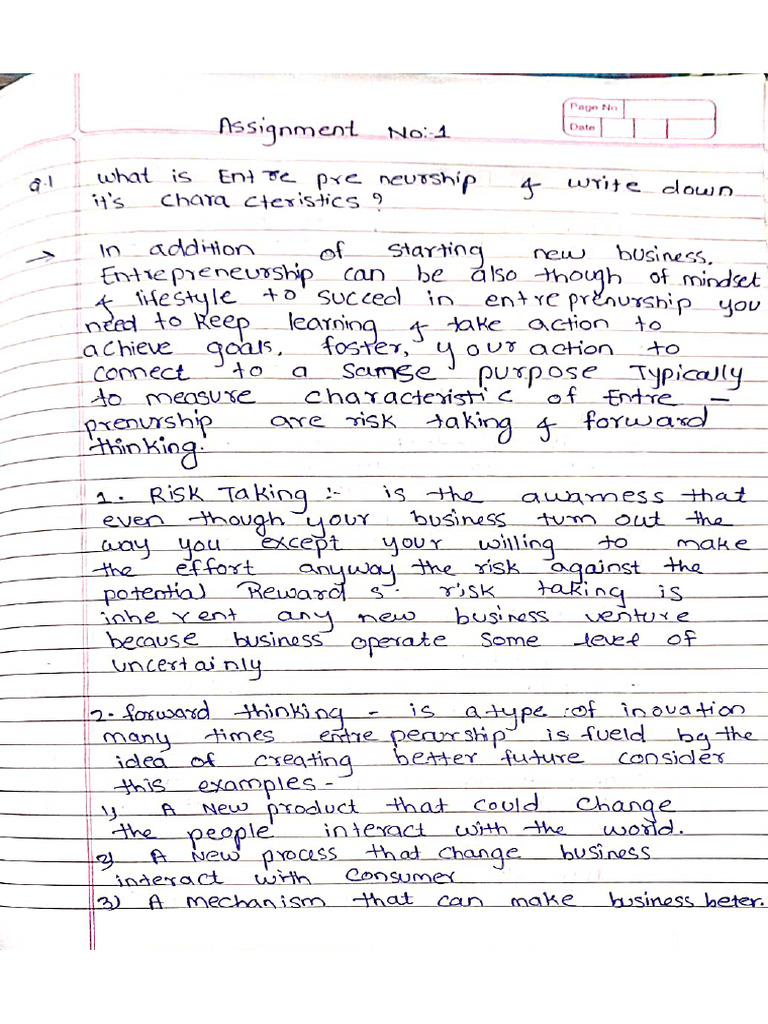 Assignment No:-1
Page No
Date
Q.1 what is Entre pre neurship & write down
it's chara cteristics?
→ In addition of starting new business.
Entrepreneurship can be also though of mindset
& lifestyle to succed in entreprenurship you
need to keep learning & take action to
achieve goals, foster, your action to
connect to a samse purpose Typically
to measure characteristic of Entre -
prenurship are risk taking & forward
thinking.
1. Risk Taking :- is the awarness that
even though your business turn out the
way you except your willing to make
the effort anyway the risk against the
potential Reward s. risk taking is
inhe rent any new business venture
because business operate some level of
uncertainly
2. forward thinking - is a type of inovation
many times entre penurship is fueld bg the
idea of creating better future consider
this examples -
1) A New product that could change
the people interact with the world.
2) A New process that change business
interact with consumer
3) A mechanism that can make business beter.